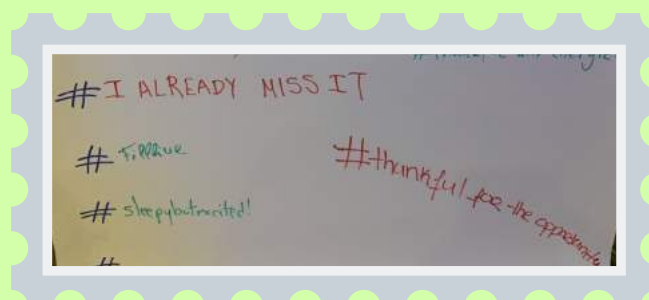 #I ALREADY MISS IT
#
#sleepybutexcited!
#thankful-for-the opportunity
#